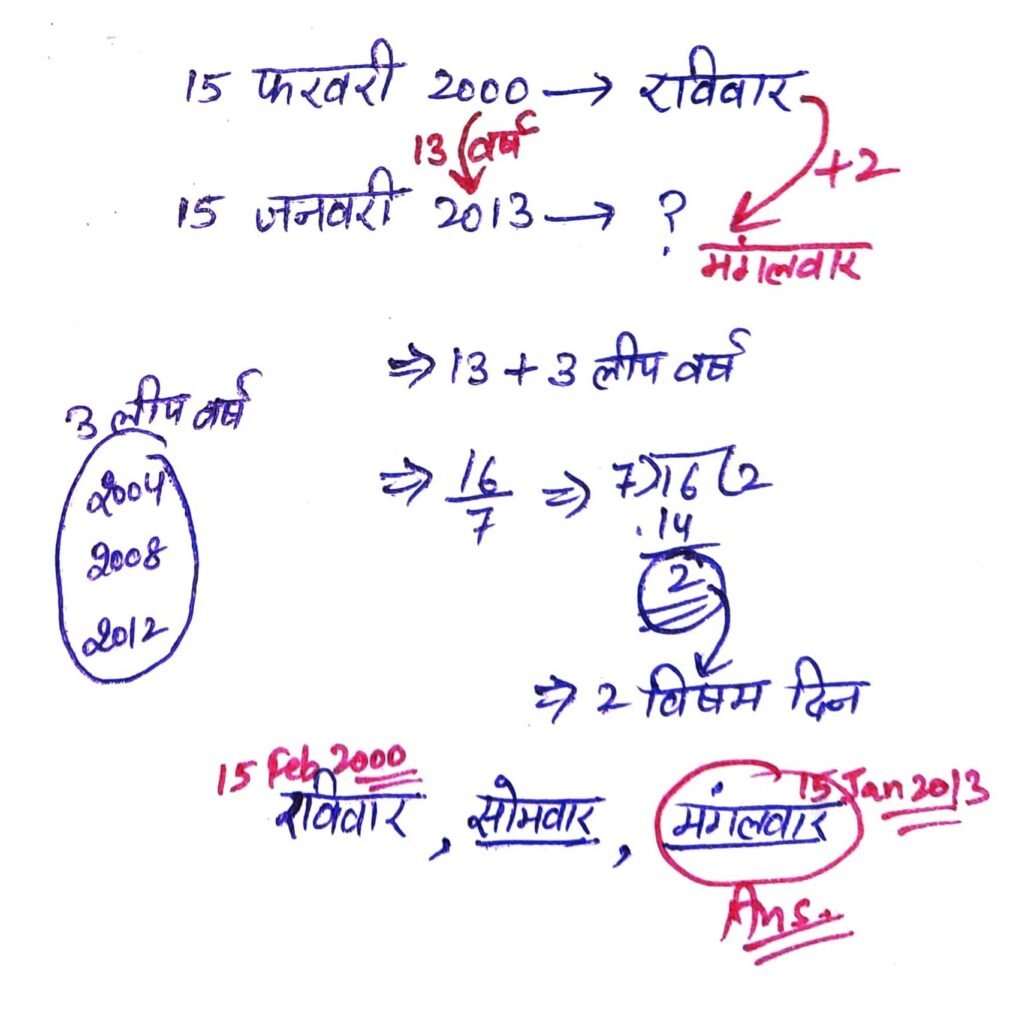 15 फरवरी 2000 → रविवार
13 वर्ष
+2
15 जनवरी 2013 → ?
मंगलवार
⇒ 13 + 3 लीप वर्ष
3 लीप वर्ष
2004
2008
2012
⇒ 16/7 ⇒ 7)16(2
14
2
⇒ 2 विषम दिन
15 Feb 2000
15 Jan 2013
रविवार, सोमवार, मंगलवार
Ans.